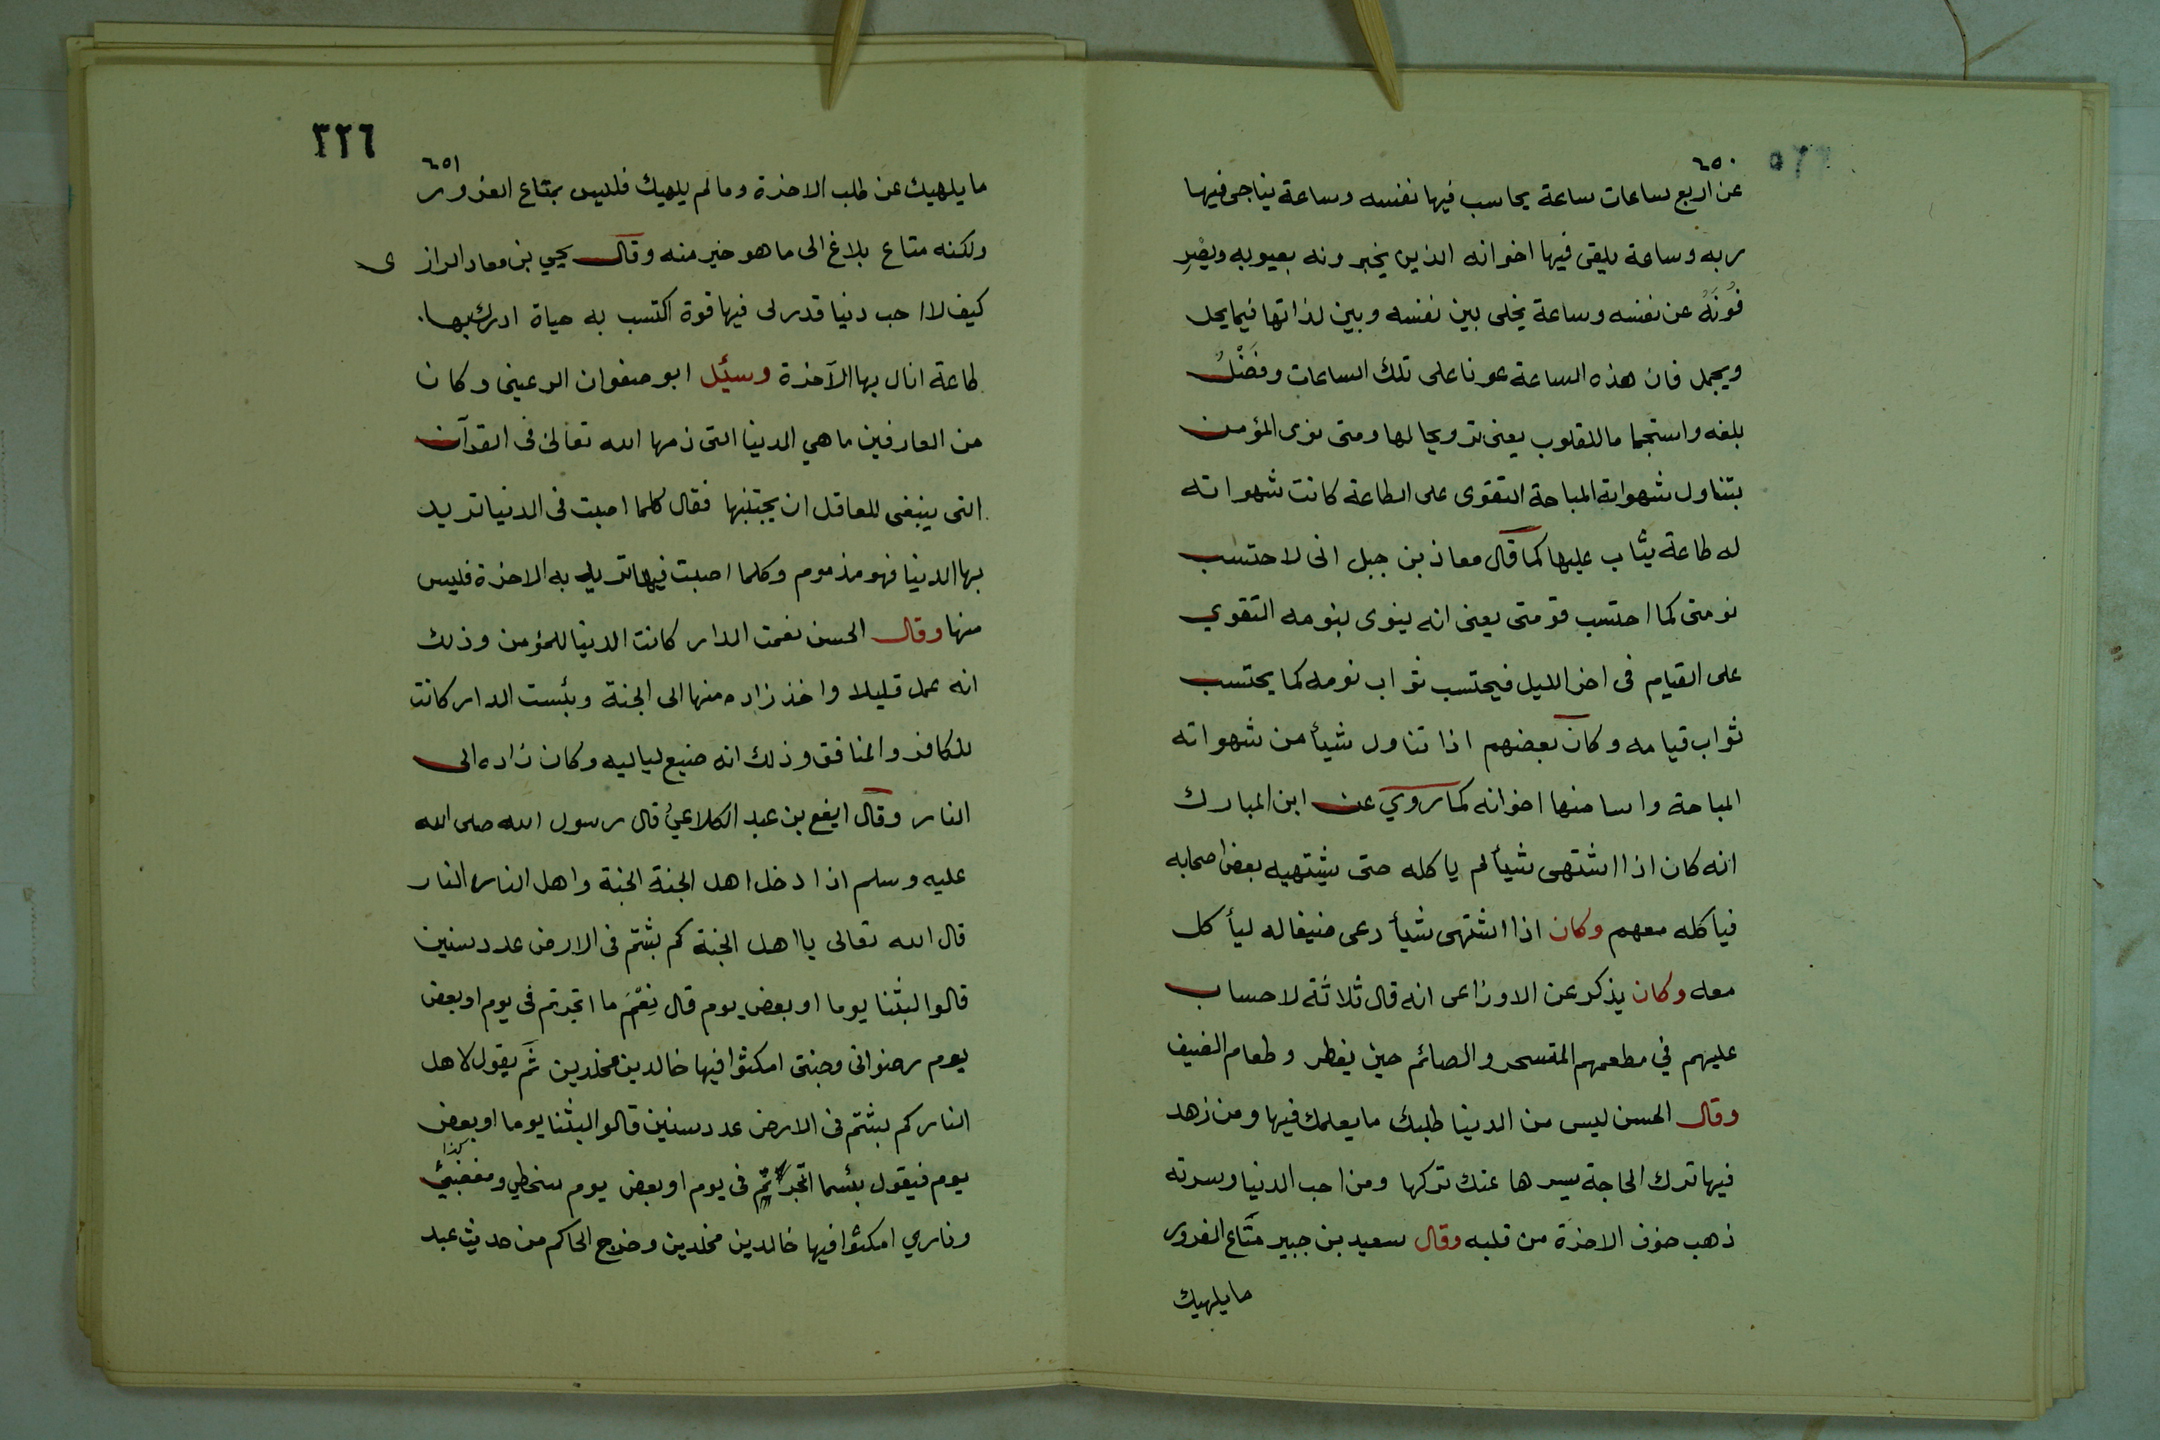 ٦٥٠
عن اربع ساعات ساعة يحاسب فيها نفسه وساعة يناجى فيها
ربه وساعة يلقى فيها اخوانه الذين يخبرونه بعيوبه ويصْرِ
فُونَهُ عن نفسه وساعة يخلى بين نفسه وبين لذاتها فيما يحل
ويجمل فان هذه الساعة عونا على تلك الساعات وفَضْلُ
بلغه واستجماما للقلوب يعنى ترويحا لها ومتى نوى المؤمن
بتناول شهواته المباحة التقوى على الطاعة كانت شهواته
له طاعة يثاب عليها كما قال معاذ بن جبل انى لاحتسب
نومتى كما احتسب قومتى يعنى انه ينوى بنومه التقوي
على القيام فى اخر الليل فيحتسب ثواب نومه كما يحتسب
ثواب قيامه وكان بعضهم اذا تناول شيأ من شهواته
المباحة واسا منها اخوانه كما روي عن ابن المبارك
انه كان اذا اشتهى شيأ لم ياكله حتى يشتهيه بعض اصحابه
فياكله معهم وكان اذا اشتهى شيأ دعى ضيفا له ليأكل
معه وكان يذكر عن الاوزاعى انه قال ثلاثة لاحساب
عليهم في مطعمهم المتسحر والصائم حين يفطر وطعام الضيف
وقال الحسن ليس من الدنيا طلبك ما يصلحك فيها ومن زهد
فيها ترك الحاجة يسدها عنك تركها ومن احب الدنيا وسرته
ذهب خوف الاخرة من قلبه وقال سعيد بن جبير متاع الغرور
ما يلهيك
٣٢٦
٦٥١
ما يلهيك عن طلب الاخرة وما لم يلهيك فليس بمتاع الغرور
ولكنه متاع بلاغ الى ما هو خير منه وقال يحيي بن معاد الرازى
كيف لا احب دنيا قدر لى فيها قوة اكتسب به حياة ادرك بها
طاعة انال بها الآخرة وسئِل ابو صفوان الرعينى وكان
من العارفين ما هي الدنيا التى ذمها الله تعالى فى القرآن
التى ينبغى للعاقل ان يجتنبها فقال كلما احببت فى الدنيا تريد
بها الدنيا فهو مذموم وكلما احببت فيها تريد به الاخرة فليس
منها وقال الحسن نعمت الدار كانت الدنيا للمؤمن وذلك
انه عمل قليلا واخذ زاده منها الى الجنة وبئست الدار كانت
للكافر والمنافق وذلك انه ضيع لياليه وكان زاده الى
النار وقال ايفع بن عبد الكلاعيُ قال رسول الله صلى الله
عليه وسلم اذا دخل اهل الجنة الجنة واهل النار النار
قال الله تعالى يا اهل الجنة كم لبثتم فى الارض عدد سنين
قالوا لبثنا يوما او بعض يوم قال نِعْمَ ما اتجرتم فى يوم او بعض
يوم رضوانى وجنتى امكثوا فيها خالدين مخلدين ثم يقول لاهل
النار كم لبثتم فى الارض عدد سنين قالوا لبثنا يوما او بعض
كذا
يوم فيقول بئسما اتجرتم فى يوم او بعض يوم سخطي ومغضبتي
وناري امكثوا فيها خالدين مخلدين وخرج الحاكم من حديث عبد